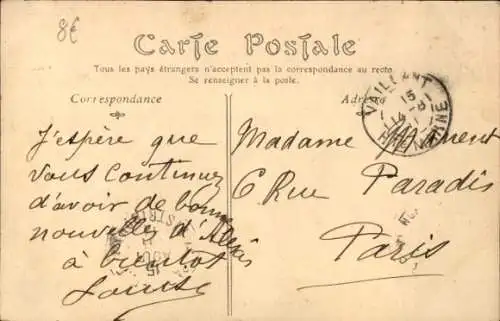 8€
Carte Postale
Tous les pays étrangers n'acceptent pas la correspondance au recto.
Se renseigner à la poste.
Correspondance
Adresse
J'espère que
vous continuez
d'avoir de bonnes
nouvelles d'Alexis
à bientôt
Louise
Madame
6 Rue Paradis
Paris
VAILLANT
15
HTE MARNE